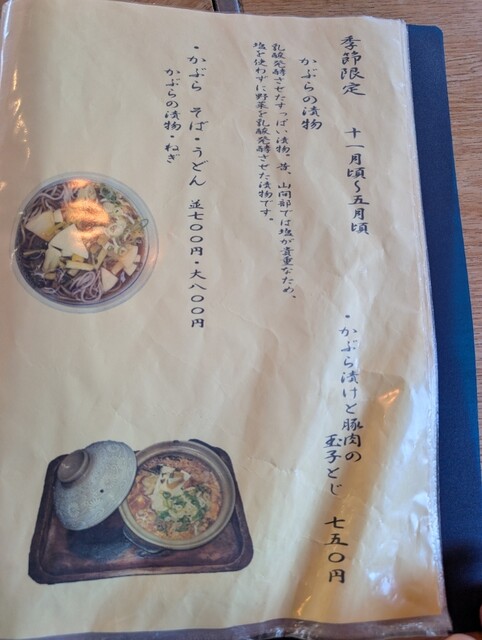 季節限定　十一月頃〜五月頃
かぶらの漬物
乳酸発酵させたすっぱい漬物。昔、山間部では塩が貴重なため、
塩を使わずに野菜を乳酸発酵させた漬物です。
・かぶら　そば・うどん　並七〇〇円・大八〇〇円
かぶらの漬物・ねぎ
・かぶら漬けと豚肉の
玉子とじ　七五〇円